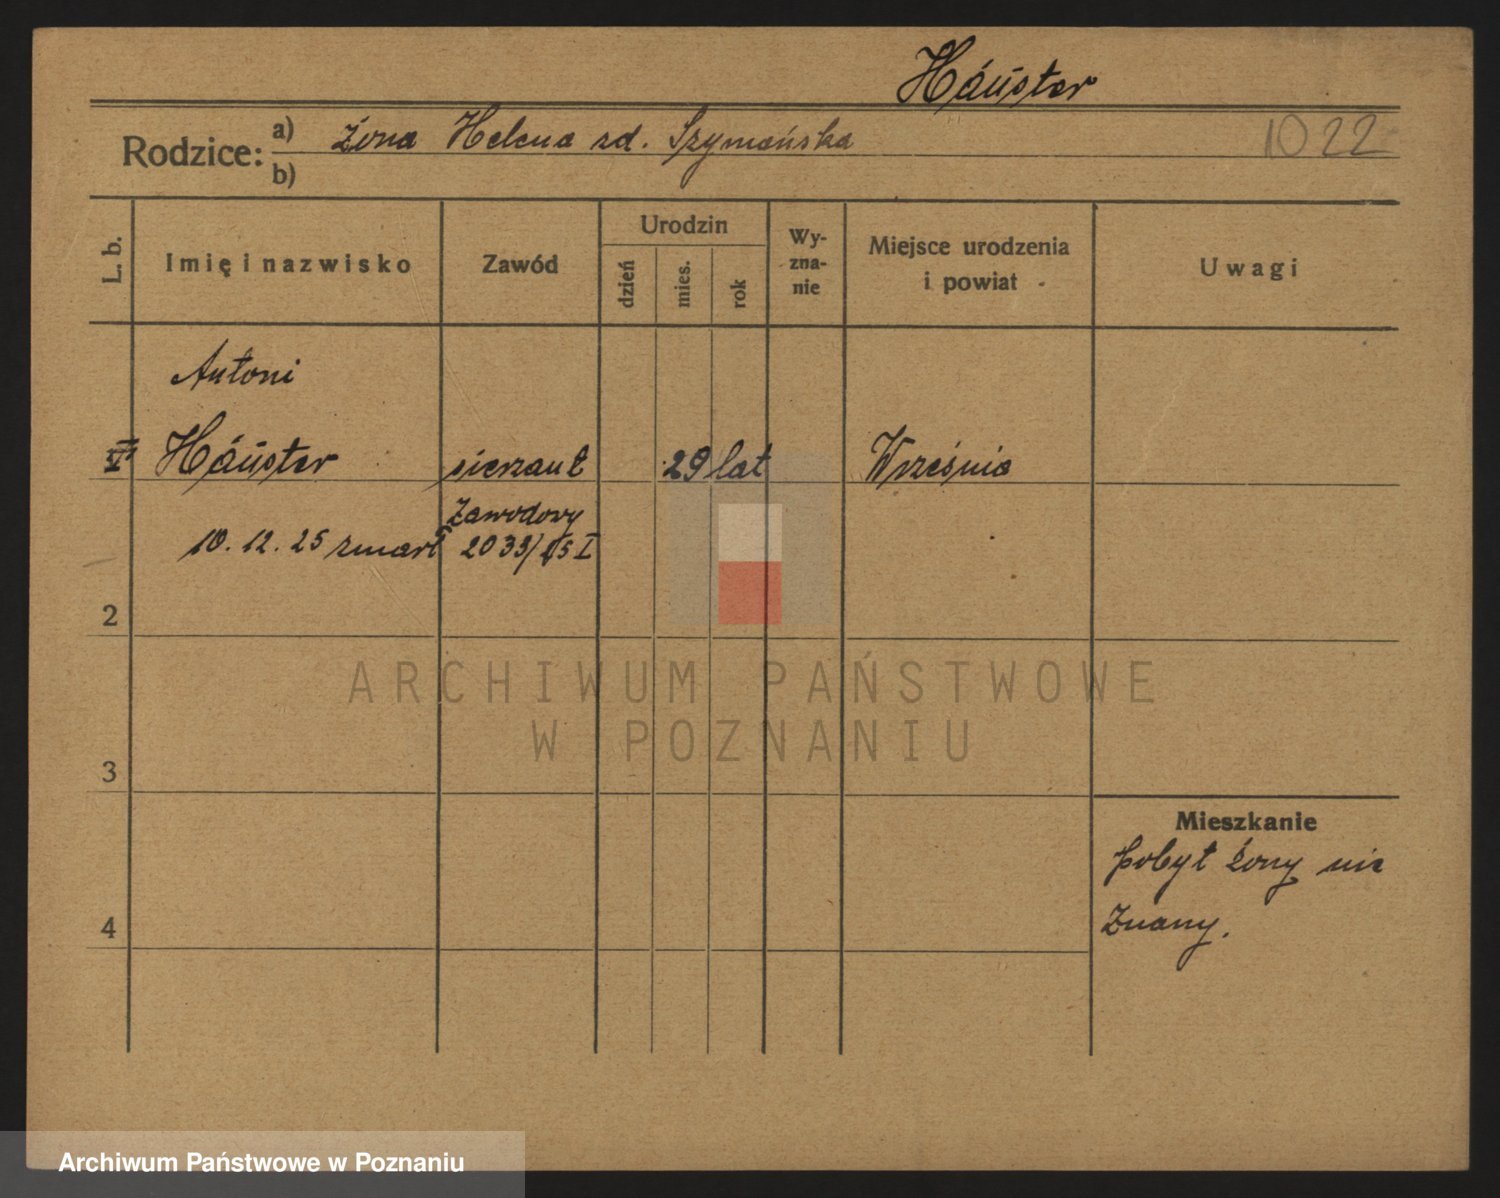 Háuster
Rodzice: a) Żona Helena zd. Szymańska
1022
b)
L. b.
Imię i nazwisko
Zawód
Urodzin
dzień
mies.
rok
Wy-
zna-
nie
Miejsce urodzenia
i powiat
Uwagi
Antoni
Háuster
sierzant
29 lat
Wrześnic
Zawodowy
10. 12. 25 zmarł
2033/25 I
2
3
4
Mieszkanie
pobyt żony nie
Znany.
ARCHIWUM PAŃSTWOWE
W POZNANIU
Archiwum Państwowe w Poznaniu